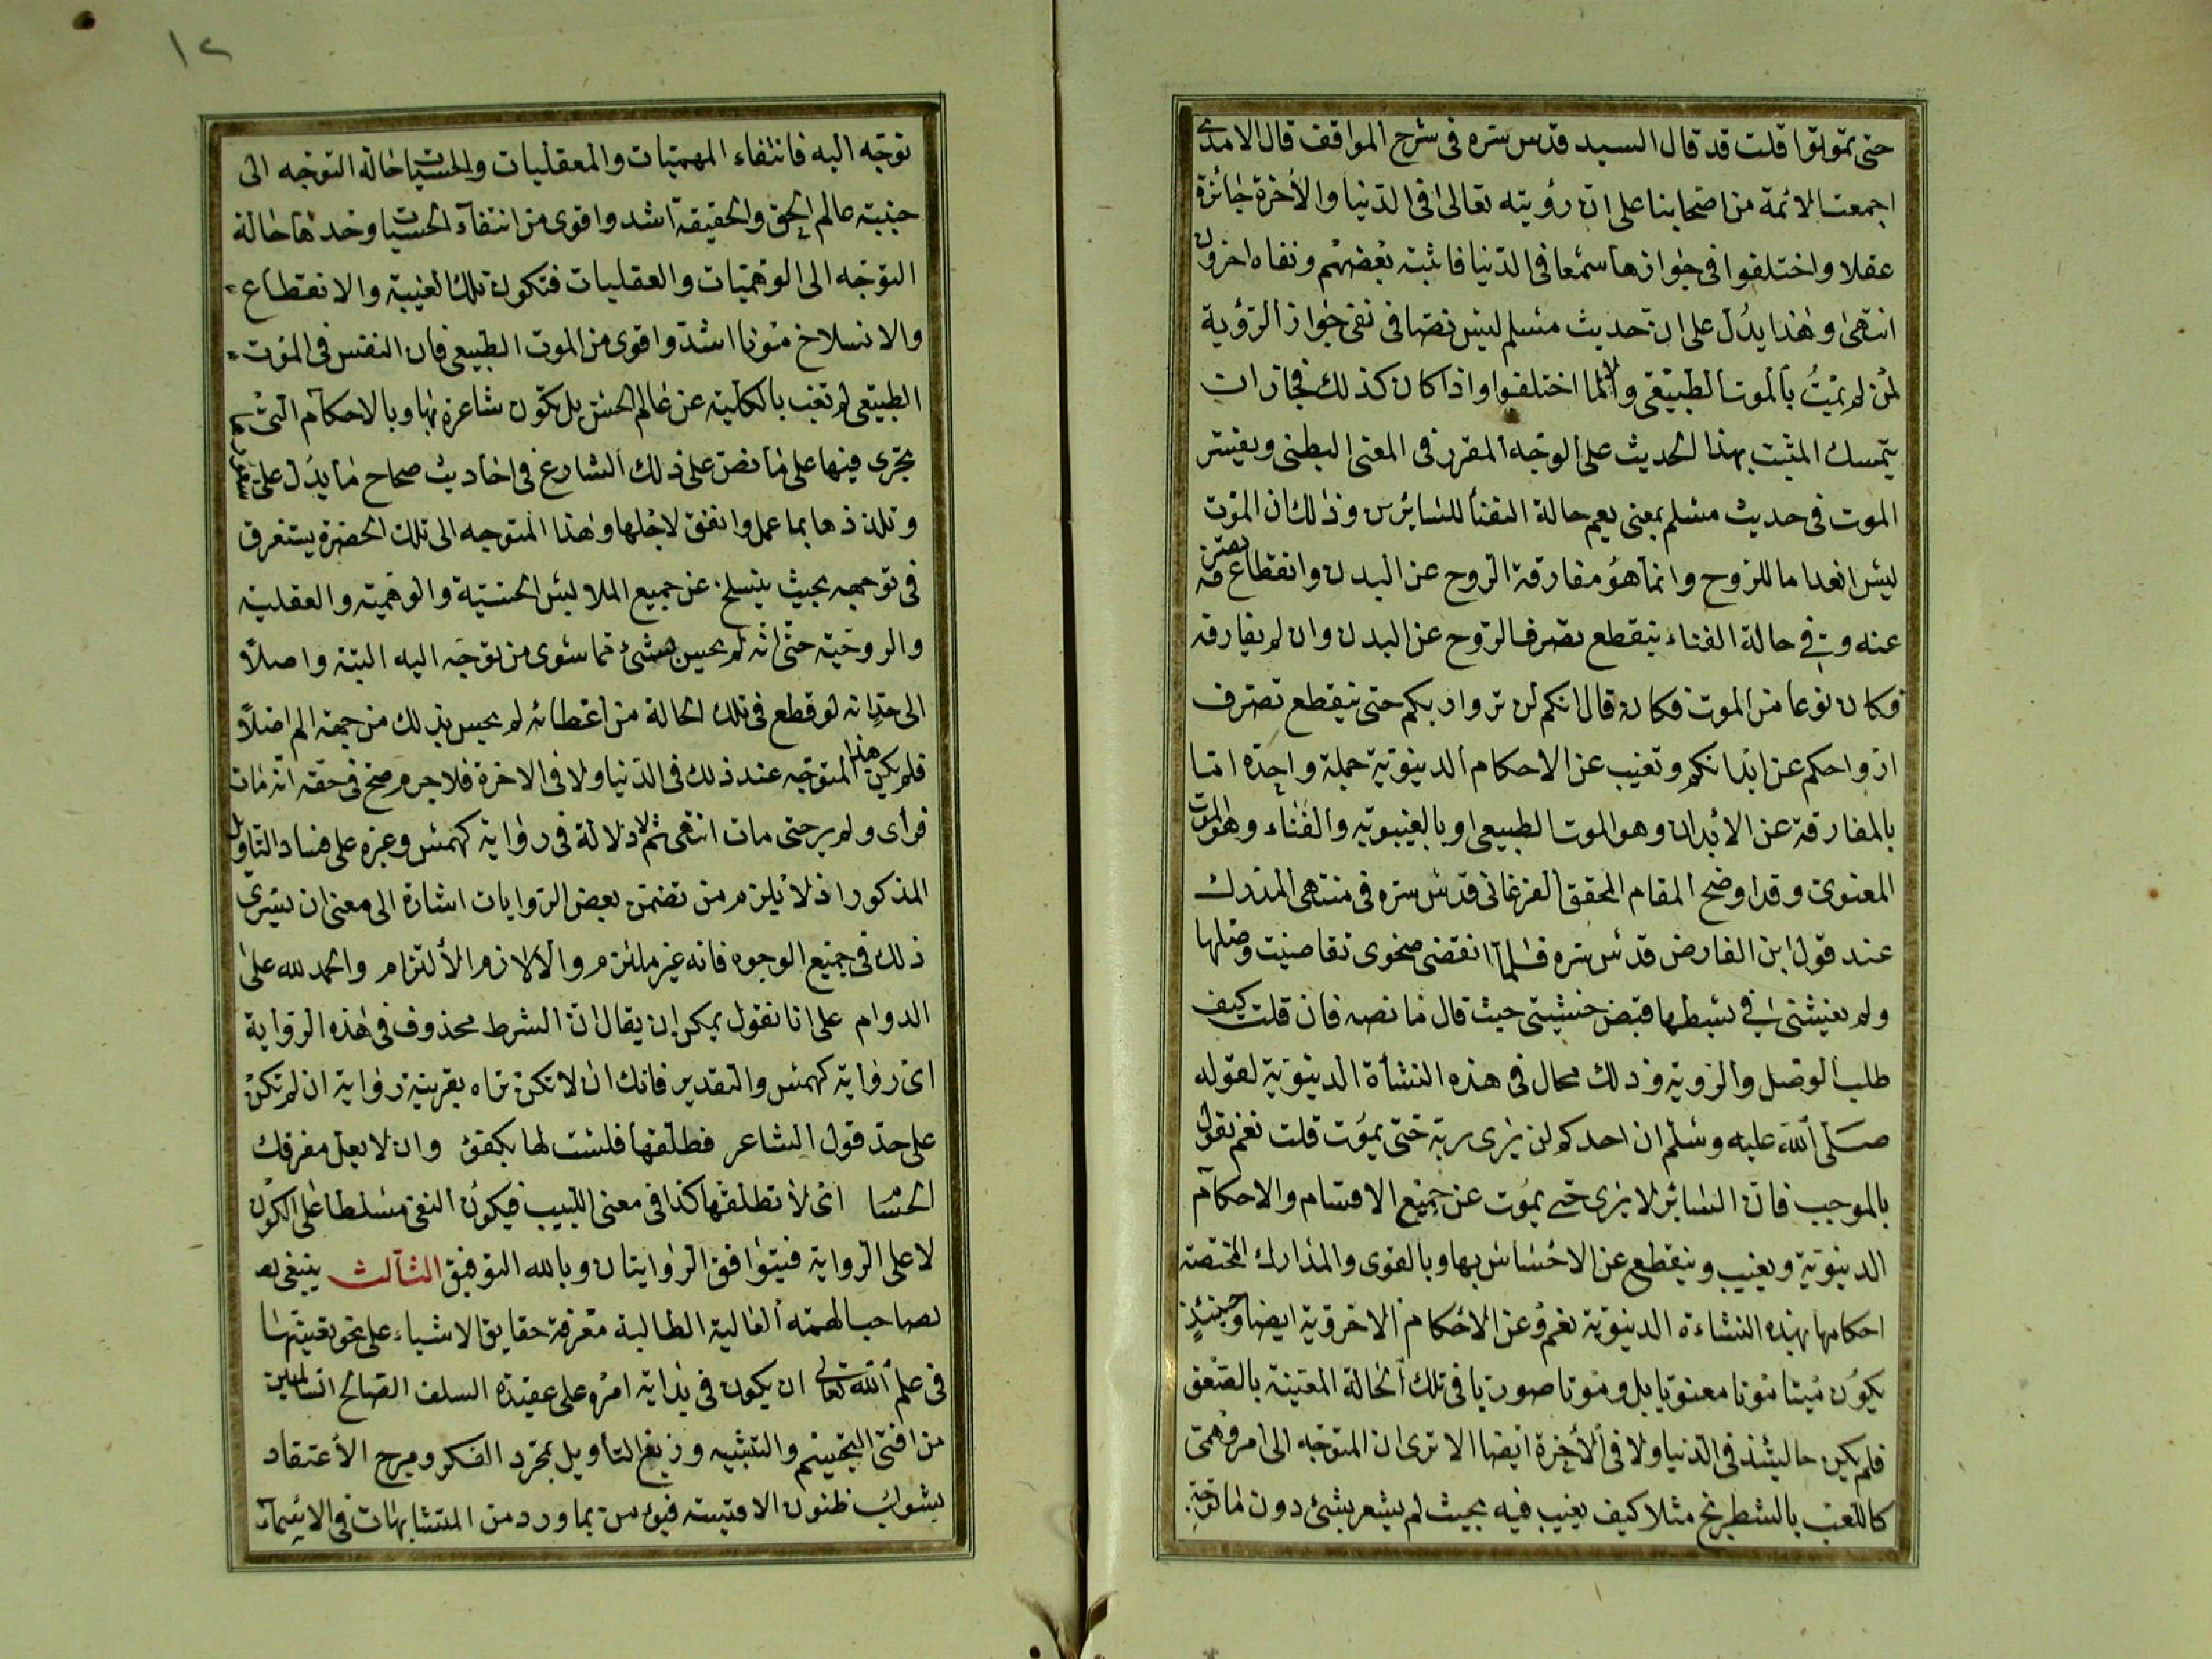 حتى تموتوا قلت قد قال السيد قدس سره فى شرح المواقف قال الامدى
اجمعت الائمة من اصحابنا على ان رؤيته تعالى فى الدنيا والأخرة جائزة
عقلا واختلفوا فى جوازها سمعا فى الدنيا فاثبته بعضهم ونفاه اخرون
انتهى وهذا يدل على ان حديث مسلم ليس نصا فى نفى جواز الرؤية
لمن لم يمت بالموت الطبيعى والا لما اختلفوا واذا كان كذلك فجاز ان
يتمسك المثبت بهذا الحديث على الوجه المقرر فى المعنى البطنى ويفسر
الموت فى حديث مسلم بمعنى يعم حالة الفنأ للسائرين وذلك ان الموت
ليس انعداما للروح وانما هو مفارقة الروح عن البدن وانقطاع تصرفه
عنه وفى حالة الفناء ينقطع تصرف الروح عن البدن وان لم يفارقه
فكان نوعا من الموت فكانه قال انكم لن تروا ربكم حتى ينقطع تصرف
ارواحكم عن ابدانكم وتغيب عن الاحكام الدينوية جملة واحدة اما
بالمفارقة عن الأبدان وهو الموت الطبيعى او بالغيبوبة والفناء وهو الموت
المعنوى وقد اوضح المقام المحقق الفرغانى قدس سره فى منتهى المدرك
عند قول ابن الفارض قدس سره فلما انقضى صحوى تقاضيت وصلها
ولم يغشنى فى بسطها قبض خشيتى حيث قال ما نصه فان قلت كيف
طلب الوصل والرويه وذلك محال فى هذه النشأة الدينوية لقوله
صلى الله عليه وسلم ان احدكم لن يرى ربه حتى يموت قلت نعم نقول
بالموجب فان السائر لا يرى حتى يموت عن جميع الاقسام والاحكام
الدينوية ويغيب وينقطع عن الاحساس بها وبالقوى والمدارك المختصة
احكامها بهذه النشاءة الدينوية نعم وعن الاحكام الاخروية ايضا وحينئذ
يكون ميتا موتا معنويا بل وموتا صوريا فى تلك الحالة المعينة بالصعق
فلم يكن حالئذ فى الدنيا ولا فى الأخرة ايضا الا ترى ان المتوجه الى امر وهمى
كاللعب بالشطرنج مثلا كيف يغيب فيه بحيث لم يشعر بشئ دون ما توجه
١٢
توجه اليه فانتفاء الوهميات والمعقليات والحسيات حالة التوجه الى
جنبة عالم الحق والحقيقة اشد واقوى من انتفاء الحسيات وحدها حالة
التوجه الى الوهميات والعقليات فتكون تلك الغيبة والانقطاع
والانسلاخ موتا اشد واقوى من الموت الطبيعى فان النفس فى الموت
الطبيعى لم تغب بالكلية عن عالم الحس بل تكون شاعرة بها وبالاحكام التى
يجرى فيها على ما نص على ذلك الشارع فى احاديث صحاح ما يدل على
وتلذذها بما عمل وانفق لاجلها وهذا المتوجه الى تلك الحضرة يستغرق
فى توجهه بحيث ينسلخ عن جميع الملابس الحسية والوهمية والعقلية
والروحية حتى انه لم يحس بشئ مما سوى من توجه اليه البتة واصلاً
الى حد انه لو قطع فى تلك الحالة من اعضائه لم يحس بذلك من جهة الم اصلاً
فلم يكن هذا المتوجه عند ذلك فى الدنيا ولا فى الاخرة فلا جرم صح فى حقه انه مات
فرأى ولم ير حتى مات انتهى ثم لا دلالة فى رواية كهمس وغيره على فساد التاويل
المذكور اذ لا يلزم من تضمن بعض الروايات اشارة الى معنى ان يسرى
ذلك فى جميع الوجوه فانه غير ملتزم ولا لازم الألتزام والحمد لله على
الدوام على انا نقول يمكن ان يقال ان الشرط محذوف فى هذه الرواية
اى رواية كهمس والتقدير فانك ان لا تكن تراه بقرينة رواية ان لم تكن
على حد قول الشاعر فطلقها فلست لها بكفؤ وان لا يعل مفرقك
الحسا اى لا تطلقها كذا فى معنى اللبيب فيكون النفى مسلطا على الكون
لا على الرواية فيتوافق الروايتان وبالله التوفيق الثالث ينبغى لصا
لصاحب الهمة العالية الطالبة معرفة حقايق الاشياء على نحو تعينها
فى علم الله تعالى ان يكون فى بداية امره على عقيدة السلف الصالح السالمين
من افتى التجسيم والتشبيه وزيغ التأويل بمجرد الفكر ومرج الأعتقاد
بشوك ظنون الاقيسة فيؤمن بما ورد من المتشابهات فى الاسماء